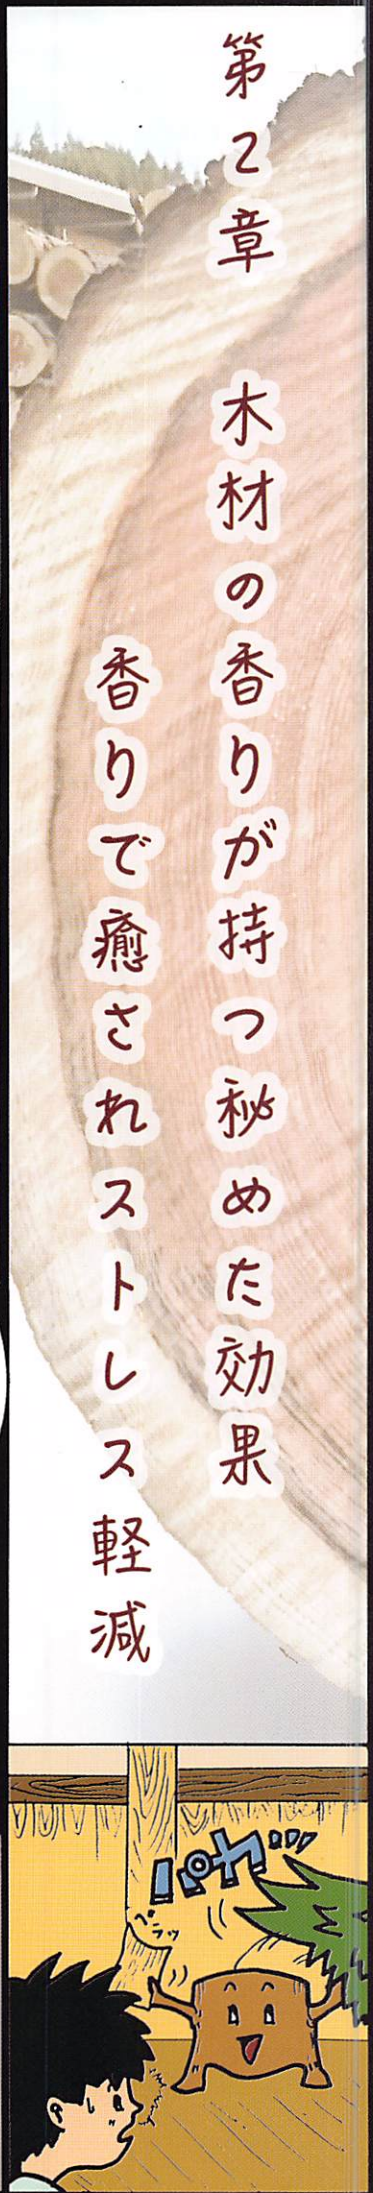 第2章 木材の香りが持つ秘めた効果
香りで癒されストレス軽減
パカ
ペラッ